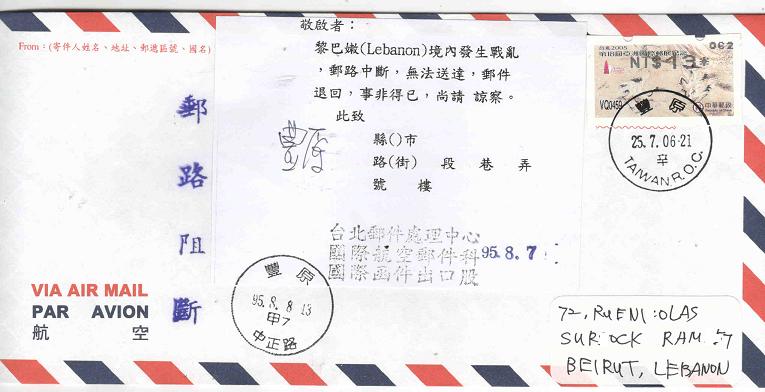 From：(寄件人姓名、地址、郵遞區號、國名)
敬啟者：
黎巴嫩(Lebanon)境內發生戰亂
，郵路中斷，無法送達，郵件
退回，事非得已，尚請 諒察。
此致
縣()市
路(街) 段 巷 弄
號 樓
豐原
郵路阻斷
台北2005
第18屆亞洲國際郵展紀念
062
NT$43*
VQ0459
中華郵政
豐原
25.7.06-21
辛
TAIWAN R.O.C.
台北郵件處理中心
國際航空郵件科 95.8.7
國際函件出口股
豐原
95.8.8 13
甲7
中正路
VIA AIR MAIL
PAR AVION
航空
72, RUENI:OLAS
SUR:OCK RAM
BEIRUT, LEBANON